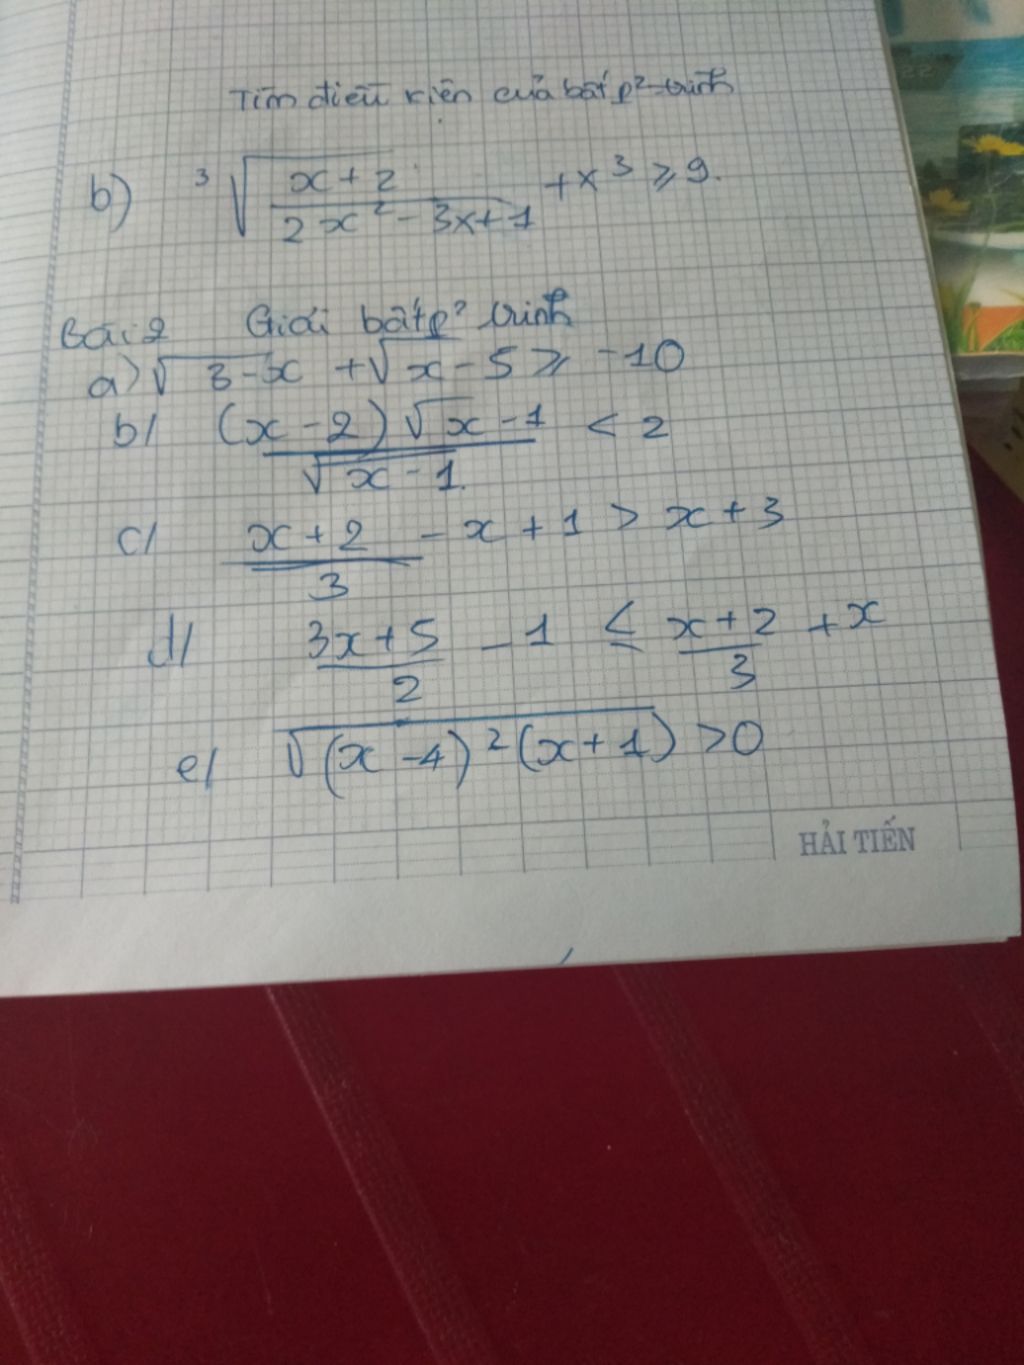 Tìm điều kiện của bất p² trình
b) ³√((x+2)/(2x²-3x+1)) + x³ ≥ 9.
Bài 2 Giải bất p² trình
a) √(3-x) + √(x-5) ≥ -10
b/ (x-2)√(x-1) / √(x-1) < 2
c/ (x+2)/3 - x + 1 > x + 3
d/ (3x+5)/2 - 1 ≤ (x+2)/3 + x
e/ √((x-4)²(x+1)) > 0
HẢI TIẾN